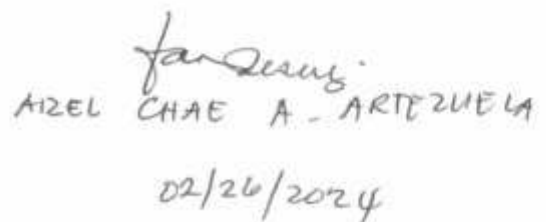 AIZEL CHAE A. ARTEZUELA
02/26/2024